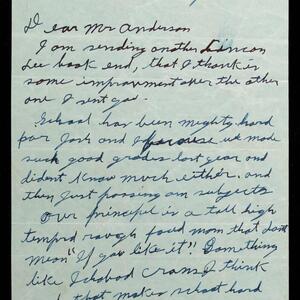 Dear Mr Anderson
I am sending another Lincon
Lee book end, that I thank is
some improvment over the other
one I sent you.
School has been mighty hard
for Josh and I because we made
such good grades last year and
dident know much either, and
then just passing our subjects
Our principle is a tall high
temprd rough faced man that dont
mean "If you like it!" Something
like Ichabod Crane I think
that makes school hard